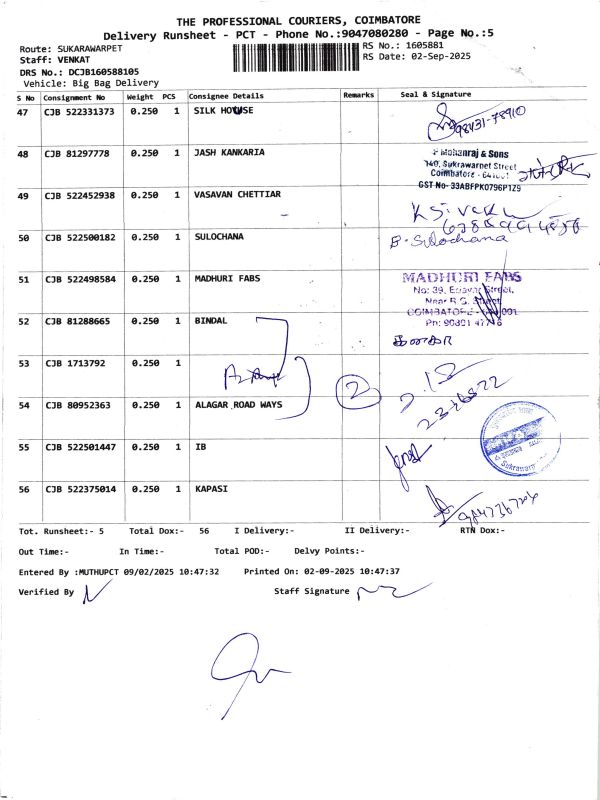 THE PROFESSIONAL COURIERS, COIMBATORE
Delivery Runsheet - PCT - Phone No.:9047080280 - Page No.:5
Route: SUKARAWARPET
RS No.: 1605881
Staff: VENKAT
RS Date: 02-Sep-2025
DRS No.: DCJB160588105
Vehicle: Big Bag Delivery
S No Consignment No Weight PCS Consignee Details Remarks Seal & Signature
47 CJB 522331373 0.250 1 SILK HOUSE
98431-78910
48 CJB 81297778 0.250 1 JASH KANKARIA
P Mohanraj & Sons
740, Sukrawarpet Street
Coimbatore - 641001
GST No- 33ABFPK0796P1Z9
49 CJB 522452938 0.250 1 VASAVAN CHETTIAR
50 CJB 522500182 0.250 1 SULOCHANA
B. Sulochana
51 CJB 522498584 0.250 1 MADHURI FABS
MADHURI FABS
No: 39, Street,
Near R.G. Street
COIMBATORE
52 CJB 81288665 0.250 1 BINDAL
53 CJB 1713792 0.250 1
2
54 CJB 80952363 0.250 1 ALAGAR ROAD WAYS
55 CJB 522501447 0.250 1 IB
56 CJB 522375014 0.250 1 KAPASI
Tot. Runsheet:- 5 Total Dox:- 56 I Delivery:- II Delivery:- RTN Dox:-
Out Time:- In Time:- Total POD:- Delvy Points:-
Entered By :MUTHUPCT 09/02/2025 10:47:32 Printed On: 02-09-2025 10:47:37
Verified By Staff Signature